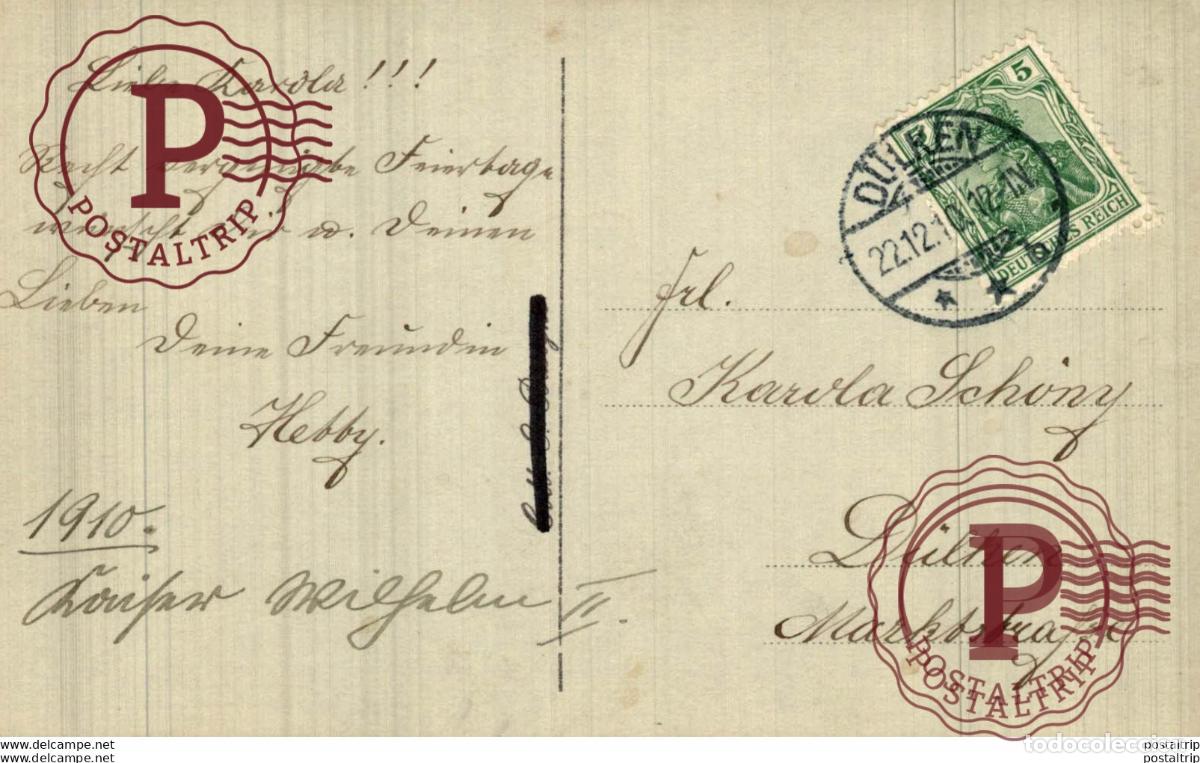 Liebe Karola!!!
Recht vergnügte Feiertage
wünscht Dir u. Deinen
Lieben
Deine Freundin
Hebby.
1910.
Kaiser Wilhelm II.
5
DEUTSCHES REICH
DÜLKEN
22.12.10. 12-1N.
Frl.
Karola Schöny
Dülken
Marktstraße
P
POSTALTRIP
P
POSTALTRIP
POSTALTRIP
todocoleccion
www.todocoleccion.net
www.todocoleccion.net
postaltrip
postaltrip